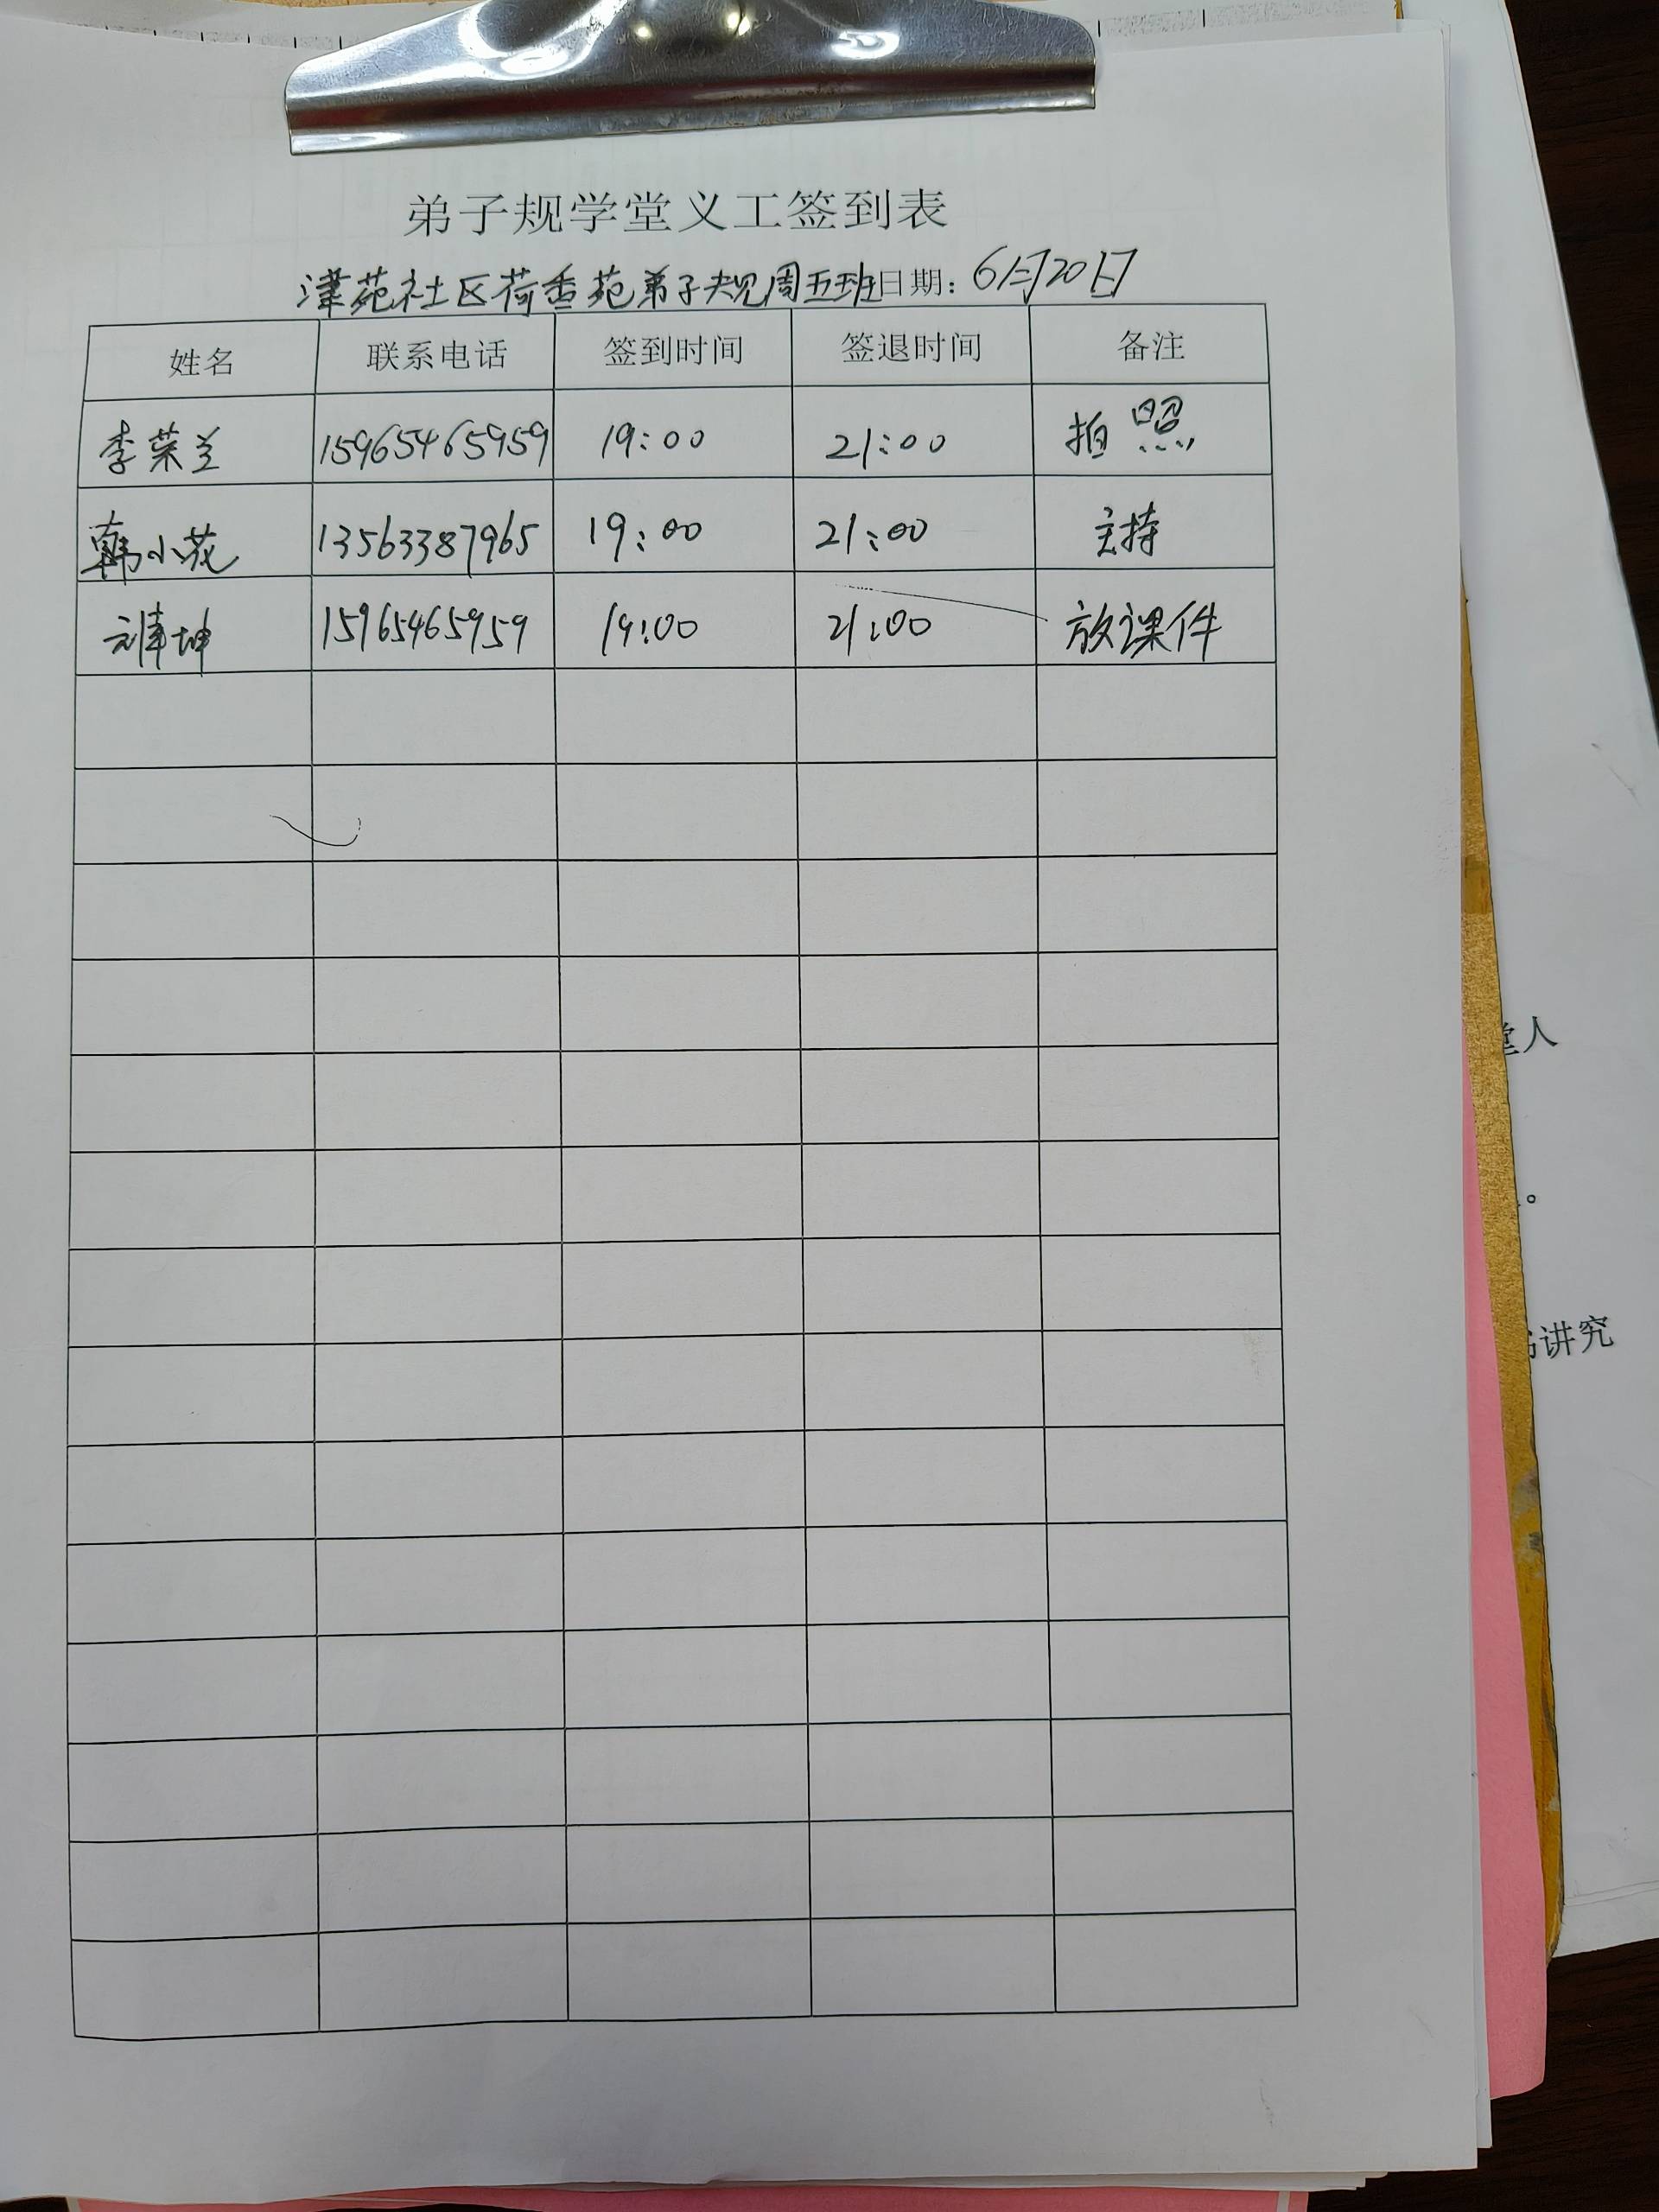 弟子规学堂义工签到表
潭苑社区荷香苑弟子规周五班日期：6月20日
姓名 联系电话 签到时间 签退时间 备注
李荣兰 15965465959 19:00 21:00 拍照
韩小花 13563387965 19:00 21:00 主持
坤 15965465959 19:00 21:00 放课件
堂人
。
讲究